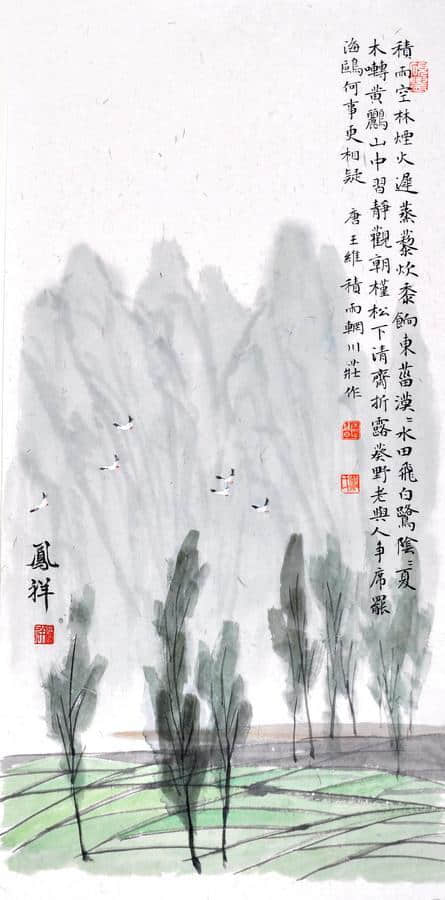 積雨空林煙火遲蒸藜炊黍餉東菑漠〻水田飛白鷺陰〻夏
木囀黃鸝山中習靜觀朝槿松下清齋折露葵野老與人爭席罷
海鷗何事更相疑 唐王維積雨輞川莊作
鳳祥